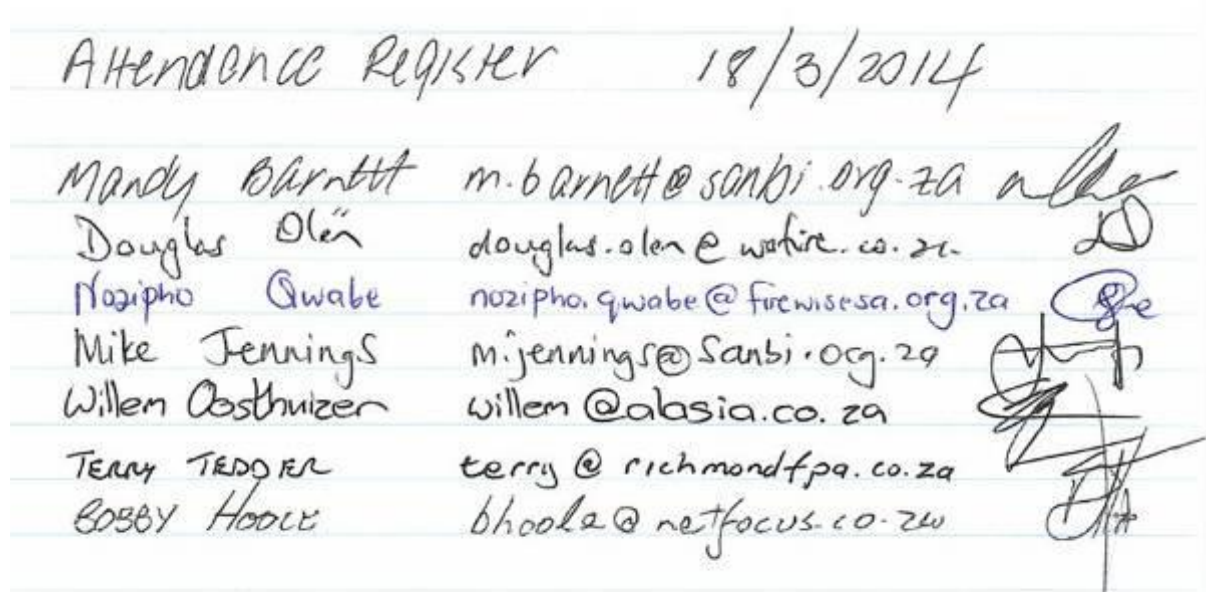 Attendance Register 18/3/2014
Mandy Barnett m.barnett@sanbi.org.za
Douglas Olën douglas.olen@wofire.co.za
Nozipho Qwabe nozipho.qwabe@firewisesa.org.za
Mike Jennings m.jennings@sanbi.org.za
Willem Oosthuizen willem@alasia.co.za
TERRY TEDDER terry@richmondfpa.co.za
BOBBY HOOLE bhoole@netfocus.co.za